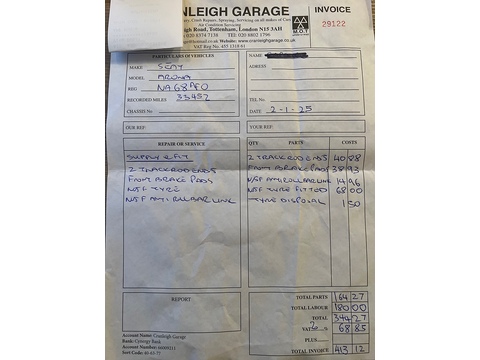 NLEIGH GARAGE INVOICE
Crash Repairs, Spraying, Servicing on all makes of Cars 29122
Air Condition Servicing
Road, Tottenham, London N15 3AH M.O.T
020 8374 7138 TEL 020 8802 1796
Website: www.cranleighgarage.co.uk
VAT Reg No. 455 1318 61
PARTICULARS OF VEHICLES
MAKE SEAT
MODEL ARONA
REG NA68 AFO
RECORDED MILES 33452
CHASSIS No
NAME
ADDRESS
TEL No
DATE 2-1-25
OUR REF: YOUR REF:
REPAIR OR SERVICE QTY. PARTS COSTS
SUPPLY & FIT 2 TRACK ROD ENDS 40 88
2 TRACK ROD ENDS FRONT BRAKE PADS 38 93
FRONT BRAKE PADS N/SF ANTI ROLLBAR LINK 14 96
N/SF TYRE N/SF TYRE FITTED 68 00
N/SF ANTI ROLLBAR LINK TYRE DISPOSAL 1 50
REPORT
TOTAL PARTS 164 27
TOTAL LABOUR 180 00
TOTAL 344 27
VAT 68 85
PLUS
TOTAL INVOICE 413 12
Account Name: Cranleigh Garage
Bank: Cynergy Bank
Account Number:
Sort Code: